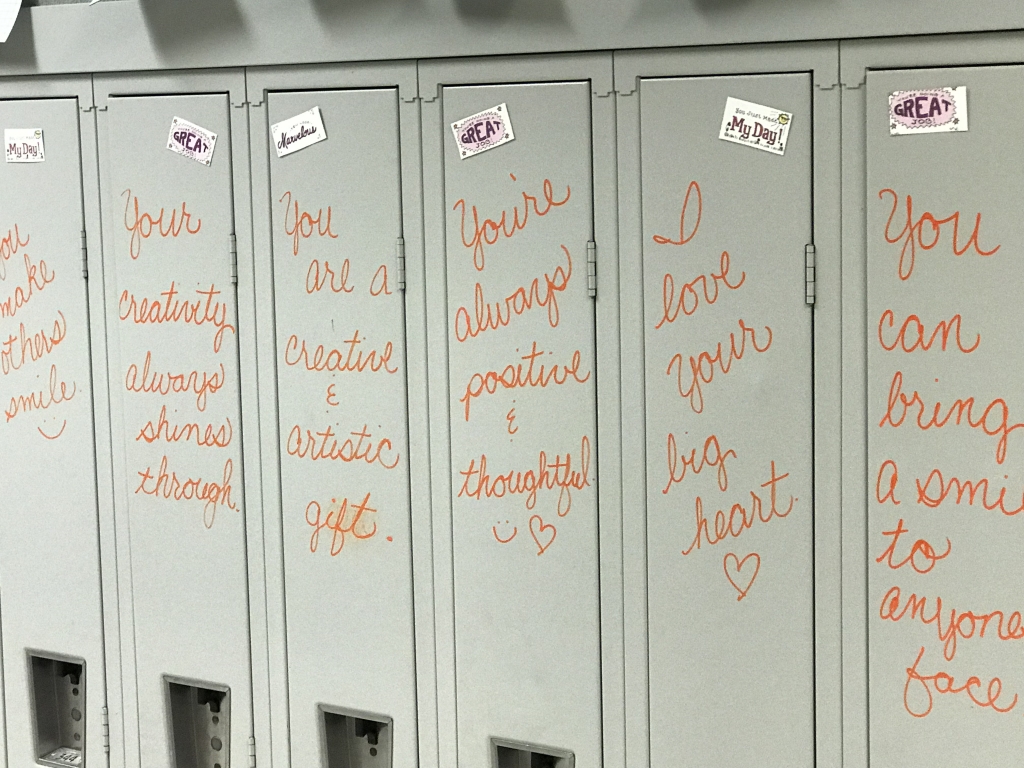 My Day!
you
make
others
smile.
GREAT
Your
creativity
always
shines
through.
Marvelous
You
are a
creative
&
artistic
gift.
GREAT
JOB
You're
always
positive
&
thoughtful.
You Just Made
My Day!
I
love
your
big
heart.
GREAT
JOB
You
can
bring
a smi
to
anyone
face